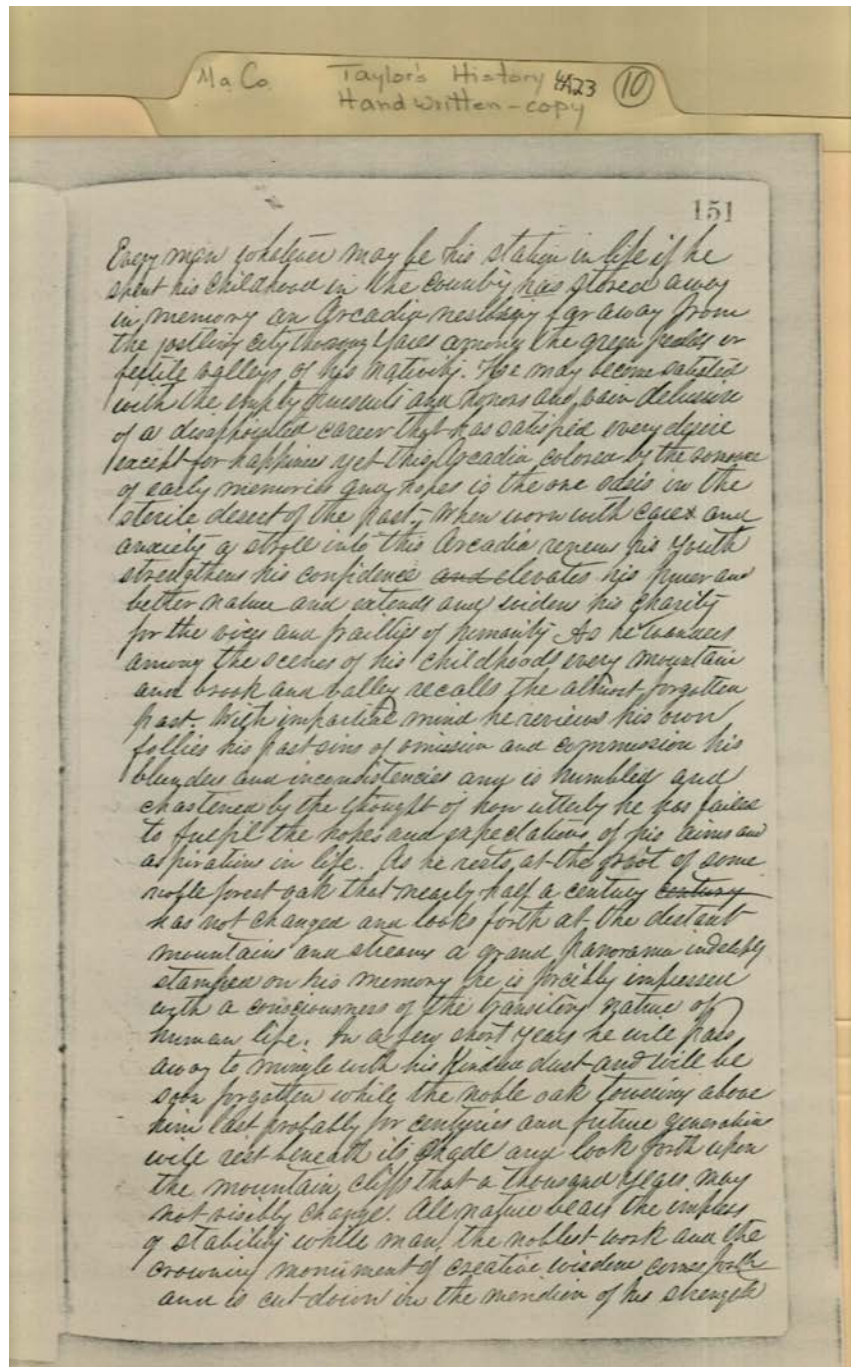 Ma. Co. Taylor's History 4A23 (10)
Handwritten - copy
151
Every man whatever may be his station in life if he
spent his childhood in the country has stored away
in memory an Arcadia nestling far away from
the jostling city among the green or
fertile valleys of his nativity. He may become satisfied
with the empty pursuits and honors and vain delusion
of a disappointed career that has satisfied every desire
except for happiness yet this Arcadia colored by the romance
of early memories and hopes is the one oasis in the
sterile desert of the past, When worn with cares and
anxiety a stroll into this Arcadia renews his youth
strengthens his confidence and elevates his purer and
better nature and extends and widens his charity
for the vices and frailties of humanity As he wanders
among the scenes of his childhoods every mountain
and brook and valley recalls the almost forgotten
past. With impartial mind he reviews his own
follies his past sins of omission and commission his
blunders and inconsistencies and is humbled and
chastened by the thought of how utterly he has failed
to fulfil the hopes and expectations of his aims and
aspirations in life. As he rests at the foot of some
noble forest oak that nearly half a century century
has not changed and looks forth at the distant
mountains and streams a grand panorama indelibly
stamped on his memory he is forcibly impressed
with a consciousness of the transitory nature of
human life. In a few short years he will pass
away to mingle with his kindred dust and will be
soon forgotten while the noble oak towering above
him last probably for centuries and future generations
will rest beneath its shade and look forth upon
the mountain cliffs that a thousand years may
not visibly change. All nature bears the impress
of stability while man, the noblest work and the
crowning monument of creative wisdom comes forth
and is cut down in the meridian of his strength